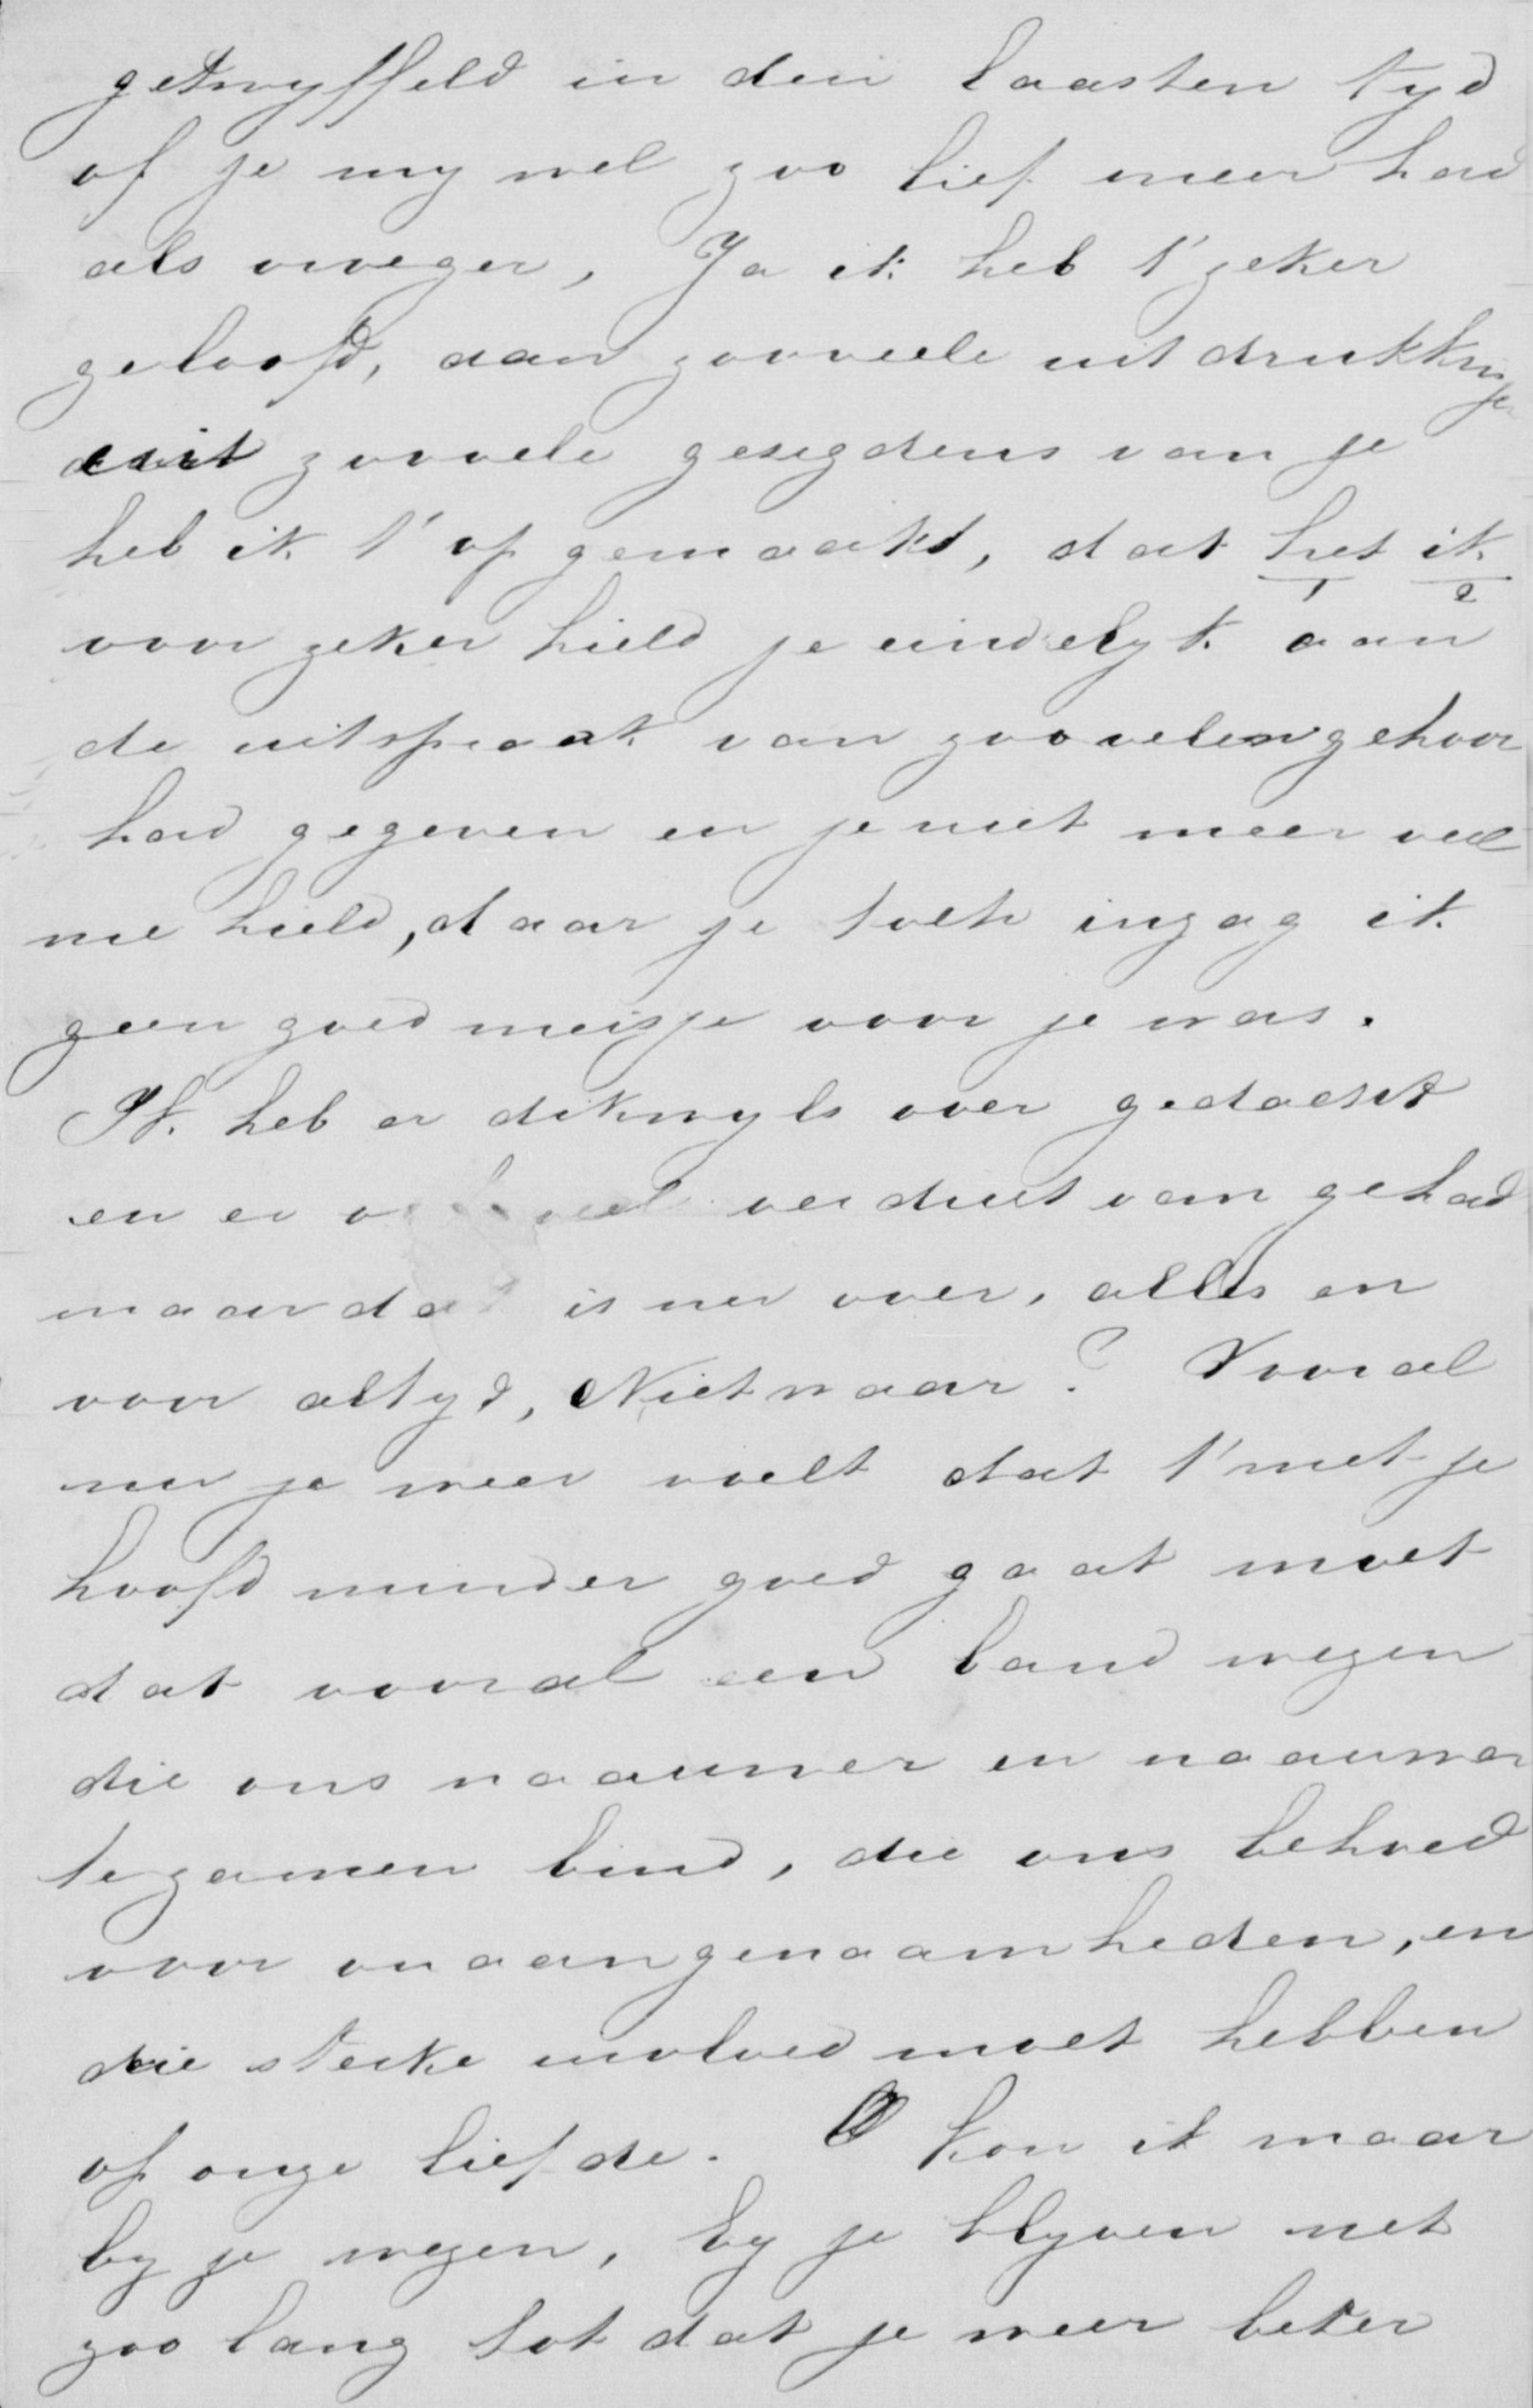 getwyffeld in den laasten tyd
of je my wel zoo lief meer had
als vroeger, Ja ik heb t' zeker
geloofd, aan zooveele uitdrukkingen
uit zoovele gesegdens van je
heb ik t' op gemaakt, dat het ik
1 2
voor zeker hield je eindelyk aan
de uitspraak van zoovelen gehoor
had gegeven en je niet meer veel
me hield, daar je toch inzag ik
geen goed meisje voor je was.
Ik heb er dikwyls over gedacht
en er veel verdriet van gehad
maar dat is nu over, alles en
voor altyd, Niet waar? Vooral
nu je weer voelt dat t' met je
hoofd minder goed gaat moet
dat vooral een band wezen
die ons naauwer en naauwer
te zamen bind, die ons behoed
voor onaangenaamheden, en
die sterke invloed moet hebben
op onze liefde. O kon ik maar
by je wezen, by je blyven net
zoo lang tot dat je weer beter